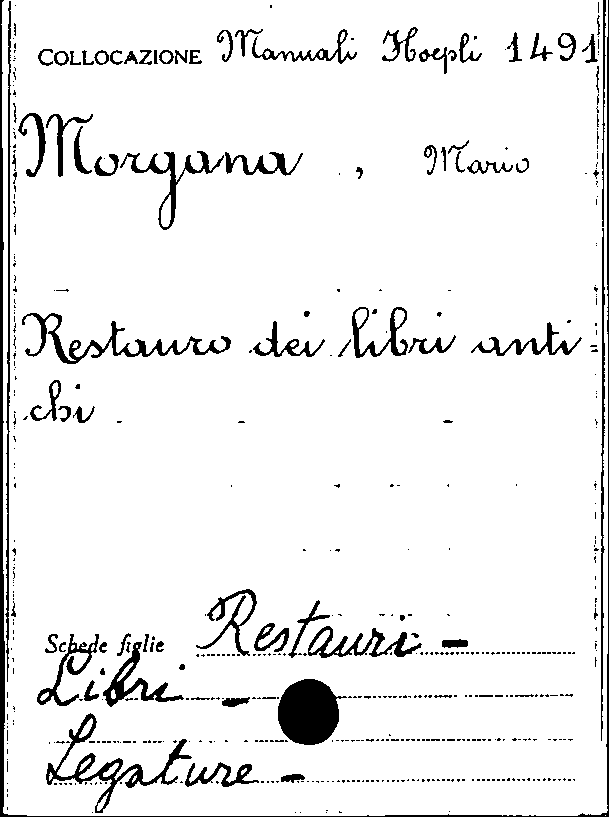 COLLOCAZIONE Manuali Hoepli 1491
Morgana, Mario
Restauro dei libri anti=
chi
Schede figlie Restauri –
Libri –
Legature –